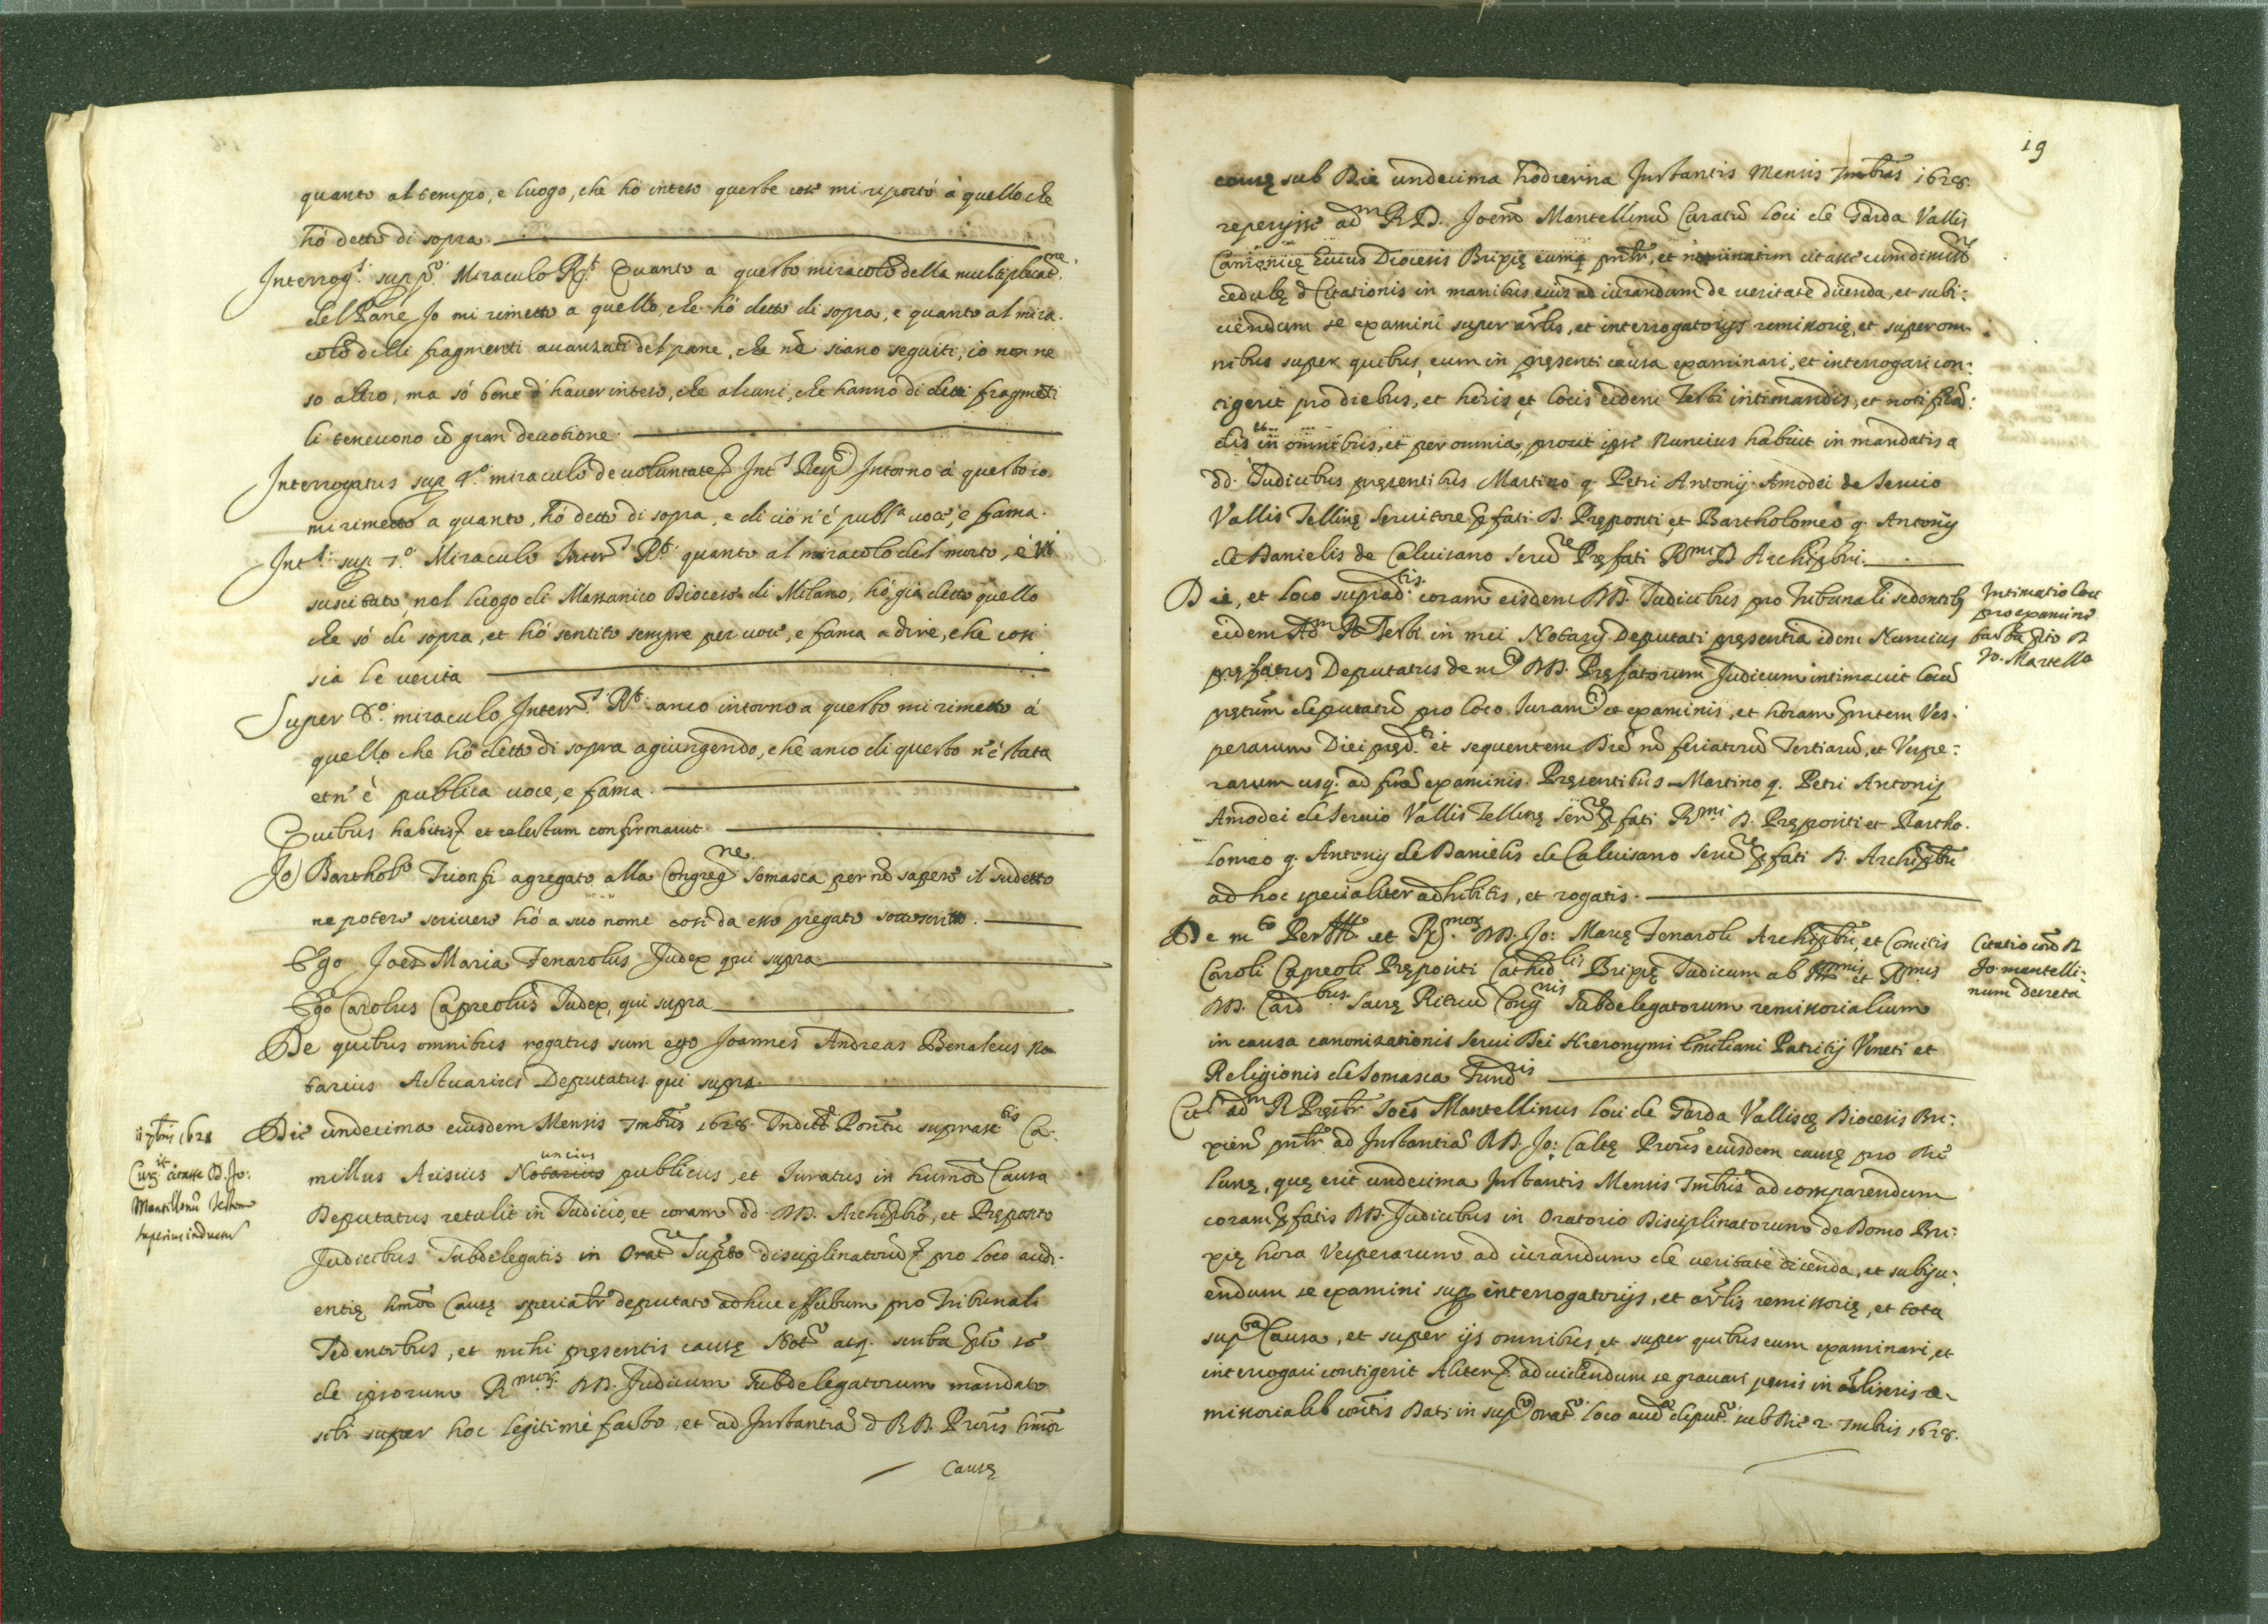 quanto al tempo, e luogo, che hò inteso queste cose mi riporto à quello che
hò detto di sopra.
Interrog.s sup p.o Miraculo R.t Quanto a questo miracolo della multiplicat.ne
del Pane Io mi rimetto a quello, che hò detto di sopra, e quanto al mira.
colo delli fragmenti auanzati del pane, che nō siano seguiti, io non ne
so altro, ma sò bene d'hauer inteso, che alcuni, che hanno di detti fragmēti
li teneuono cō gran deuotione.
Interrogatus sup 4.o miraculo de uoluntate Int.s Resp. Intorno à questo io
mi rimetto a quanto, hò detto di sopra, e di ciò n'è publ.a uoce, e fama.
Int.s sup 7.o Miraculo Inter.s R.t quanto al miracolo del morto, è
suscitato nel luogo di Massanico Diocese di Milano, hò già detto quello
che sò di sopra, et hò sentito sempre per uoce, e fama a dire, che cosi
sia le uerita
Super 8.o miraculo Interr.s R.t anco intorno a questo mi rimetto à
quello che hò detto di sopra agiungendo, che anco di questo n'è stata
et n'è publica uoce, e fama.
Quibus habitis et relectum confirmauit.
Io Barthol.o Trionfi agregato alla Congreg.ne Somasca per nō sapere il sudetto
ne potere scriuere hò a suo nome cosi da esso pregato sottoscritto.
Ego Joēs Maria Fenarolus Judex qui supra
Ego Carolus Capreolus Iudex, qui supra
De quibus omnibus rogatus sum ego Joannes Andreas Benaleus no
tarius Actuarius Deputatus qui supra.
11 7bris 1628
Die undecima eiusdem Mensis 7mbris 1628. Indict. Pontū suprasc.tis Ca.
millus Arisius Notarius uncius publicus, et Iuratus in humōi Causa
citasse D. Jo:
Mantellinū testem
superius inductū
Deputatus retulit in Iudicio, et coram dd. RR. Archipbrō, et Preposito
Judicibus Subdelegatis in Orat.e Sup.to disciplinatorū pro loco audi-
entię hmōi Causę specialr deputato ad huc effectum pro Tribunali
Sedentibus, et mihi pręsentis causę Not.o atq. scriba
de ipsorum R.mor. DD. Judicum Subdelegatorum mandato
sibi super hoc legitimè facto, et ad Instantiā d R D. Proris hmōi
Causę
19
causę sub Die undecima hodierna Instantis Mensis 7mbris 1628.
reperijsse ad.m R D. Joēm Mantellinū Curatū loci de Garda Vallis
Camonicę huius Diocesis Brixię eumq pntr, et nominatim citasse cum dimiss.e
cedulę d Citationis in manibus eius ad iurandum de ueritate dicenda, et subi:
ciendum se examini super artlis, et interrogatorijs remissorię, et super om.
nibus super quibus, eum in pręsenti causa examinari, et interrogari con:
tigerit pro diebus, et horis et locis eidem Testi intimandis, et notificā:
dis in omnibus, et per omnia, prout ipse Nuncius habuit in mandatis a
dd. Iudicibus pręsentibus Martino q. Petri Antonij Amodei de Seruio
Vallis Tellinę Seruitore pfati D. Prępositi, et Bartholomeo q. Antonij
de Danielis de Caluisano seru.re Pręfati R.mi D Archipbri.
Die, et loco suprad.tis coram eisdem DD. Iudicibus pro Tribunali sedentib
Intimatio loci
pro examine
eidem Ad.m R. Testi in mei Notarij Deputati pręsentia idem Nuncius
Jo. Martello
pręfatus Deputatus de m.to DD. Pręfatorum Judicum intimauit locū
prętum deputatū pro loco Iuram.ti et examinis, et horam pntem Ves.
perarum Diei pręd.ti et sequentem Diē nō feriatorū Tertiarū, et Vespe:
rarum usq. ad finē examinis. Pręsentibus Martino q. Petri Antonij
Amodei de Seruio Vallis Tellinę Ser.re pfati R.mi D. Prępositi et Bartho.
lomeo q. Antonij de Danielis de Caluisano Seru.re pfati D. Archipbri
ad hoc specialiter adhibitis, et rogatis.
De m.to Per Ill. et R.mor. DD. Jo: Marię Fenaroli Archipbri, et Comitis
Citatio contra R
Jo. mantelli:
num decreta
Caroli Capreoli Prępositi Cathed.lis Brixię Iudicum ab Ill.mis et R.mis
DD. Card.bus Sacrę Rituū Cong.nis Subdelegatorum remissorialium
in causa canonizationis Serui Dei Hieronymi Emiliani Patritij Veneti et
Religionis de Somasca Fund.ris
Cit.r ad.m R Pręsbr Joēs Mantellinus loci de Garda Vallis cę Diocesis Bri:
xien pntr ad Instantiā R D. Jo: Caltę Proris eiusdem causę pro Die
lunę, quę erit undecima Instantis Mensis 7mbris ad comparendum
coram pfatis DD. Judicibus in Oratorio Disciplinatorum de Domo Bri:
xię hora Vesperarum ad iurandum de ueritate dicenda, et subijci:
endum se examini sup interrogatorijs, et artlis remissorię, et tota
sup.ta Causa, et super ijs omnibus, et super quibus eum examinari, et
interrogari contigerit Aliter ad uidendum se grauari penis in aliis re-
missorialib contis Dat. in sup.to orat. loco aud. deput. sub Die 2. 7mbris 1628.